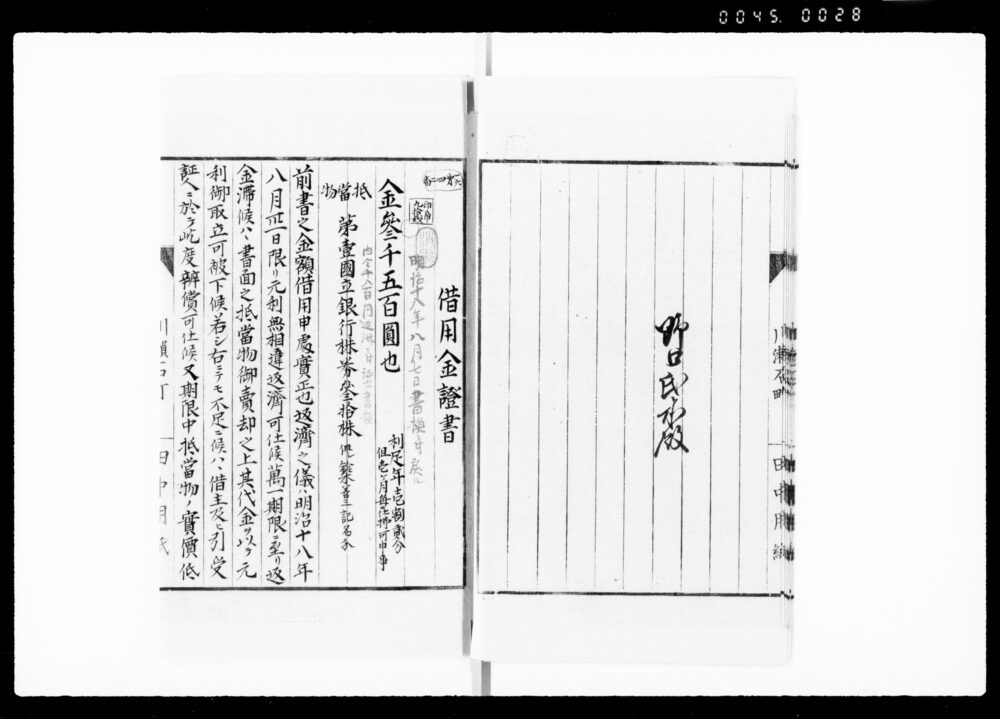 0045. 0028
野口氏永殿
田中用紙
借用金證書
明治十八年八月七日書換
金參千五百圓也
利足年壱割貳分
但壱ヶ月毎仕拂可申事
抵當物
第壹國立銀行株券參拾株
前書之金額借用申處實正也返濟之儀ハ明治十八年
八月卅一日限リ元利無相違返濟可仕候萬一期限ニ至リ返
金滞候ハヽ書面之抵當物御賣却之上其代金ヲ以テ元
利御取立可被下候若シ右ニテモ不足ニ候ハヽ借主及ヒ引受
証人ニ於テ屹度辨償可仕候又期限中抵當物ノ實價低
田中用紙